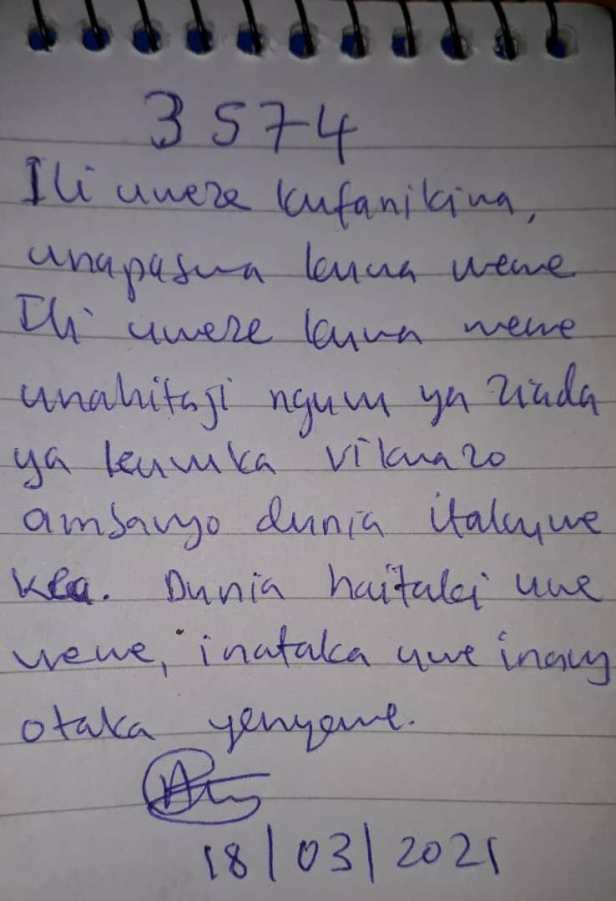 3574
Ili uweze kufanikiwa,
unapaswa kuwa wewe.
Ili uweze kuwa wewe
unahitaji nguvu ya ziada
ya kuvuka vikwazo
ambavyo dunia itakuwe
kea. Dunia haitaki uwe
wewe, inataka uwe inavy
otaka yenyewe.
18/03/2021